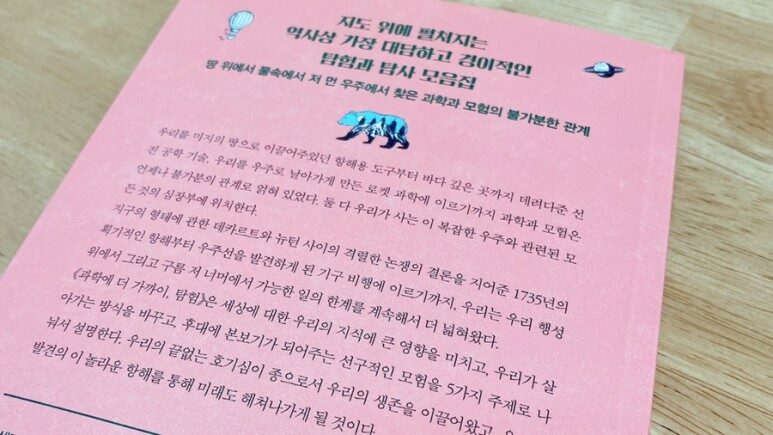 지도 위에 펼쳐지는
역사상 가장 대담하고 경이적인
탐험과 탐사 모음집
땅 위에서 물속에서 저 먼 우주에서 찾은 과학과 모험의 불가분한 관계
우리를 미지의 땅으로 이끌어주었던 항해용 도구부터 바다 깊은 곳까지 데려다준 선
진 공학 기술, 우리를 우주로 날아가게 만든 로켓 과학에 이르기까지 과학과 모험은
언제나 불가분의 관계로 얽혀 있었다. 둘 다 우리가 사는 이 복잡한 우주와 관련된 모
든 것의 심장부에 위치한다.
지구의 형태에 관한 데카르트와 뉴턴 사이의 격렬한 논쟁의 결론을 지어준 1735년의
획기적인 항해부터 우주선을 발견하게 된 기구 비행에 이르기까지, 우리는 우리 행성
위에서 그리고 구름 저 너머에서 가능한 일의 한계를 계속해서 더 넓혀왔다.
《과학에 더 가까이, 탐험》은 세상에 대한 우리의 지식에 큰 영향을 미치고, 우리가 살
아가는 방식을 바꾸고, 후대에 본보기가 되어주는 선구적인 모험을 5가지 주제로 나
눠서 설명한다. 우리의 끝없는 호기심이 종으로서 우리의 생존을 이끌어왔고,
발견의 이 놀라운 항해를 통해 미래도 헤쳐나가게 될 것이다.